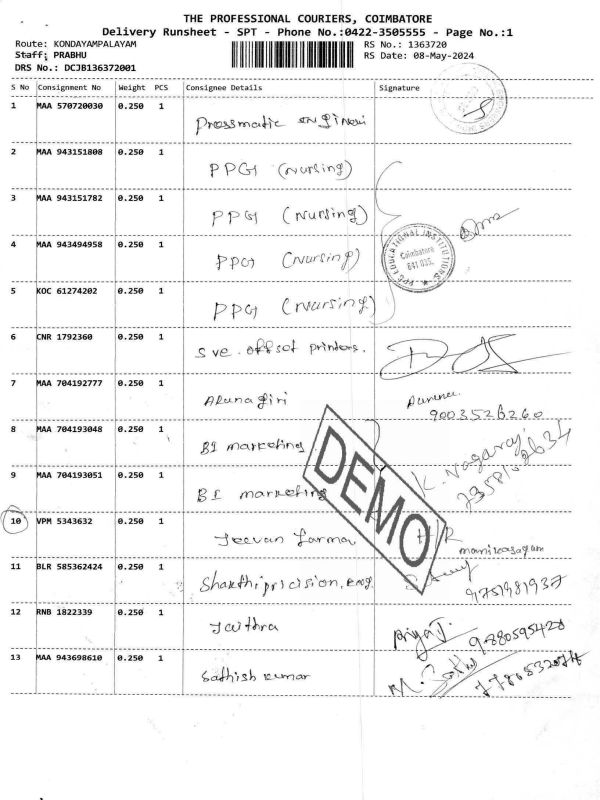 THE PROFESSIONAL COURIERS, COIMBATORE
Delivery Runsheet - SPT - Phone No.:0422-3505555 - Page No.:1
Route: KONDAYAMPALAYAM
RS No.: 1363720
Staff: PRABHU
RS Date: 08-May-2024
DRS No.: DCJB136372001
S No Consignment No Weight PCS Consignee Details Signature
1 MAA 570720030 0.250 1 Pressmatic
2 MAA 943151808 0.250 1 PPG (Nursing)
3 MAA 943151782 0.250 1 PPG (Nursing)
4 MAA 943494958 0.250 1 PPG (Nursing)
PPG EDUCATIONAL INSTITUTIONS
Coimbatore
641 035.
5 KOC 61274202 0.250 1 PPG (Nursing)
6 CNR 1792360 0.250 1 Sve. offset printers.
7 MAA 704192777 0.250 1 Arunagiri
9003526260
8 MAA 704193048 0.250 1 BI marketing
K. Nagaraj
9 MAA 704193051 0.250 1 BI marketing
DEMO
10 VPM 5343632 0.250 1 Jeevan Farma
manikasagam
11 BLR 585362424 0.250 1 Shakthi pricision. eng.
9751981937
12 RNB 1822339 0.250 1 Jaithra
Priya J. 9880595428
13 MAA 943698610 0.250 1 Sathish kumar